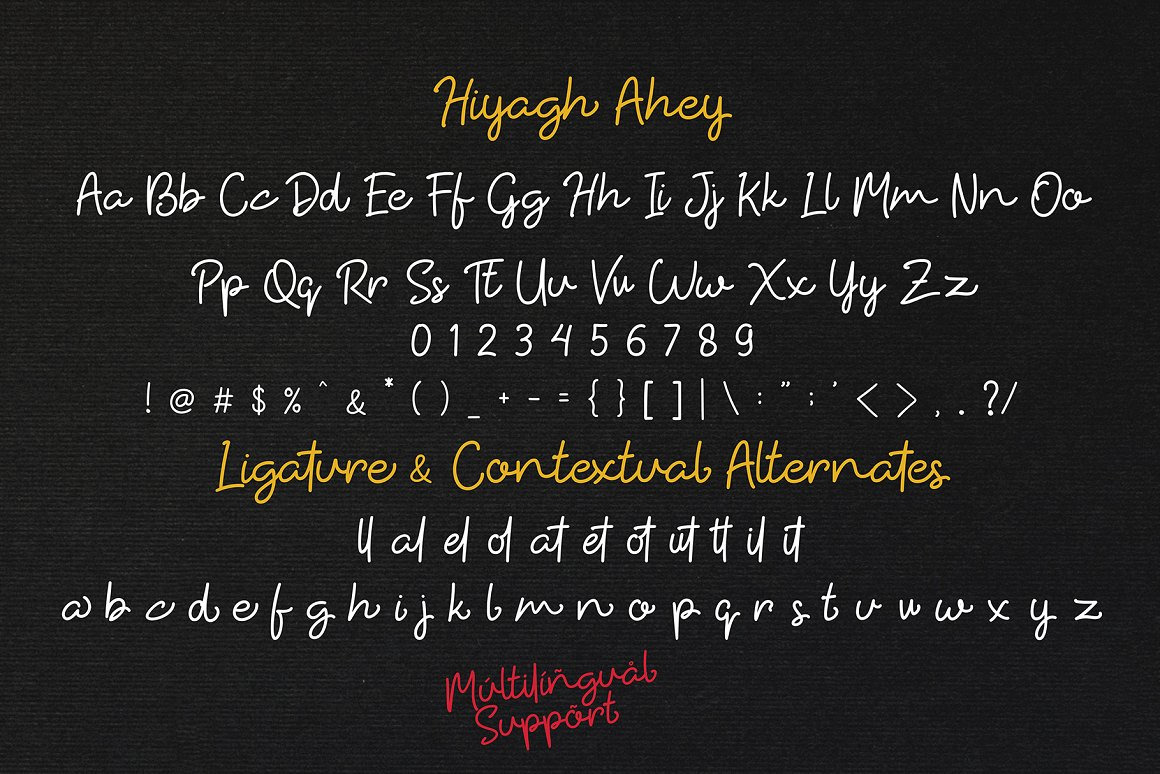 Hiyagh Ahey
Aa Bb Cc Dd Ee Ff Gg Hh Ii Jj Kk Ll Mm Nn Oo
Pp Qq Rr Ss Tt Uu Vv Ww Xx Yy Zz
0 1 2 3 4 5 6 7 8 9
! @ # $ % ^ & * ( ) _ + - = { } [ ] | \ : " ; ' < > , . ? /
Ligature & Contextual Alternates
ll al el ol at et ot ut tt il it
a b c d e f g h i j k l m n o p q r s t v u w x y z
Múltiliñguål
Suppõrt